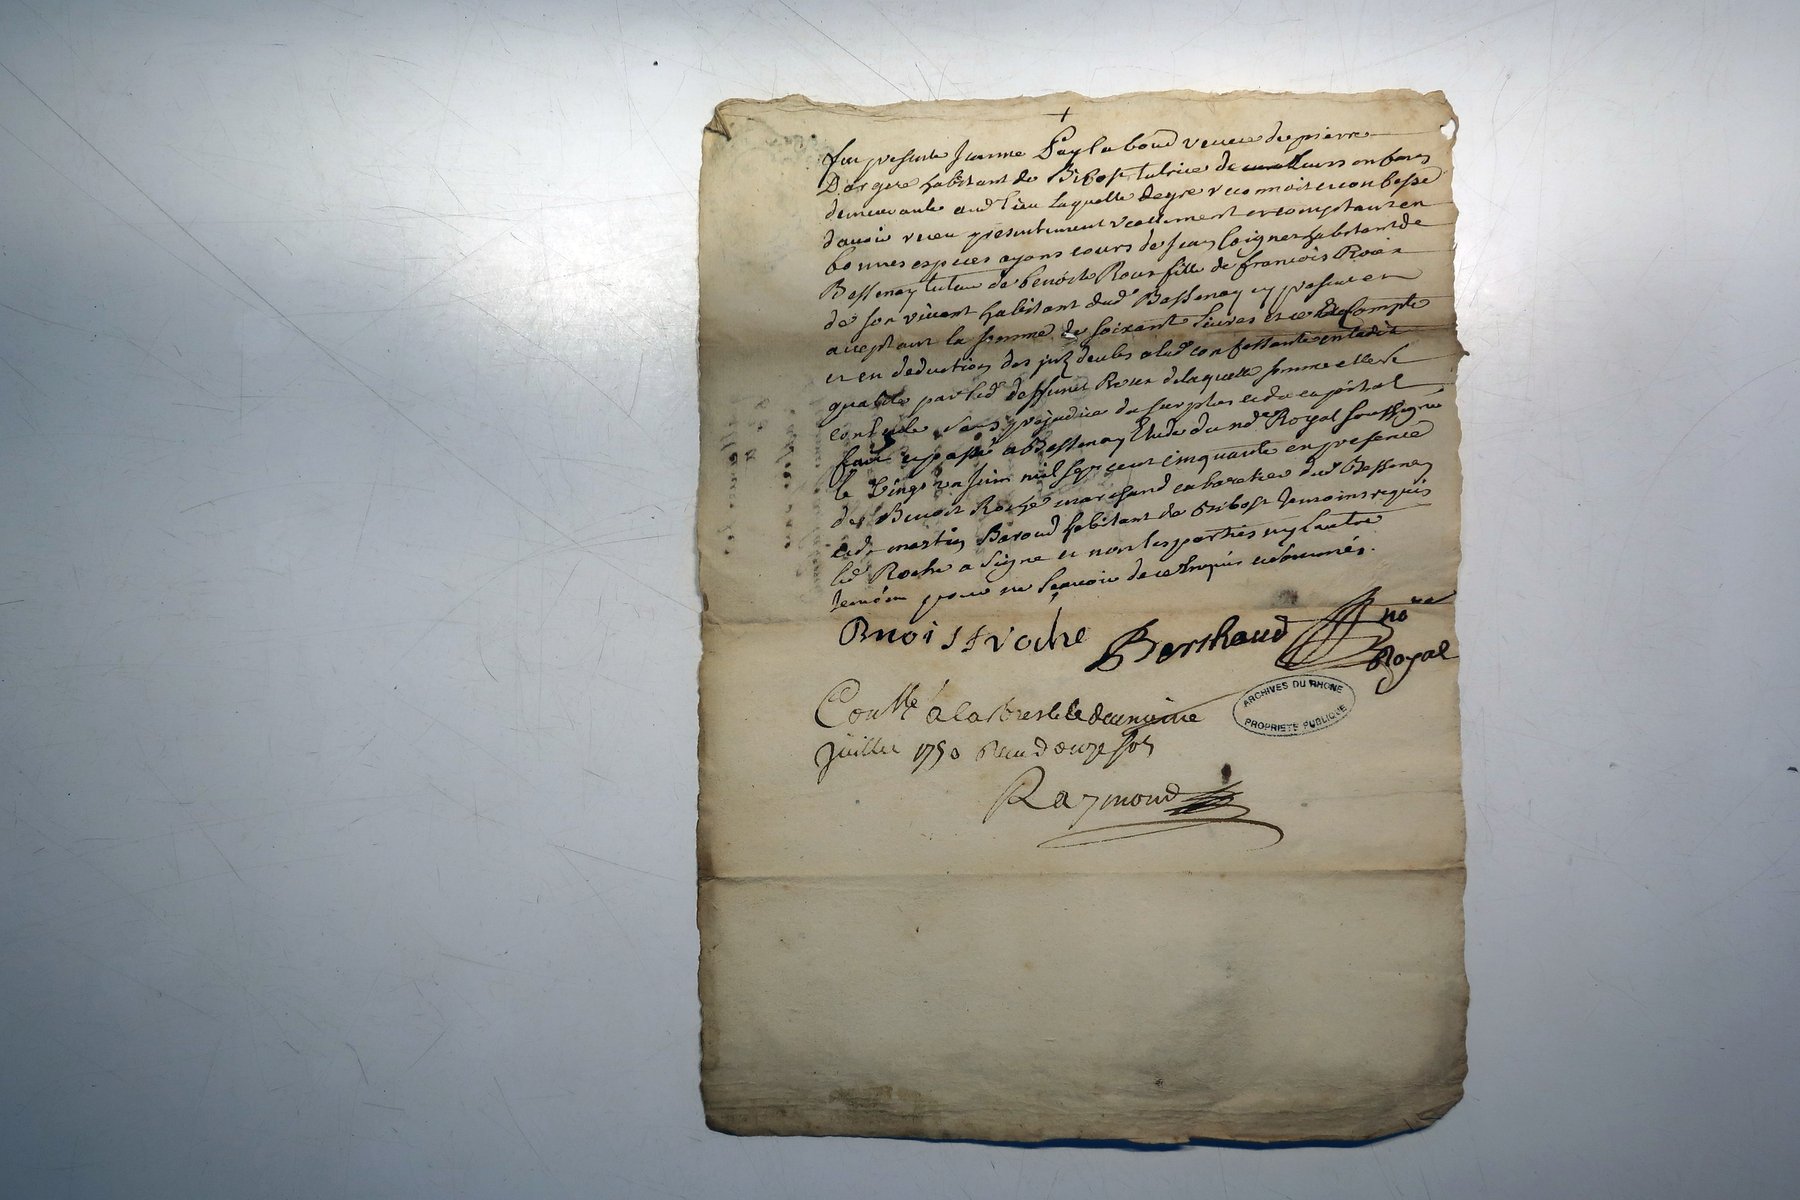 +
fut presente Jeanne Paylaboud veuve de pierre
Dorgere habitant de Bibost tutrice de leurs enfans
demeurante aud lieu laquelle de gre reconnoit et confesse
d'avoir receu presentement reellement et comptant en
bonnes especes ayans cours de Jean Coignet habitant de
Bessenay tuteur de benoist Roux fils de francois Roux
de son vivant habitant dud Bessenay cy present et
acceptant la somme de soixant livres et ce a Compte
et en deduction des jntz deubs a lad confessante en ladite
qualite par led deffunt Roux de laquelle somme elle se
contente sans prejudice du surplus et du capital
fait et passé a Bessenay Etude du nore Royal soussigné
le Vingt un Juin mil sept cent cinquante en presence
de Benoit Roche marchand cabaretier dud Bessenay
et de martin Baroud habitant de Bibost temoins requis
led Roche a signe et non les parties ny l'autre
temoin pour ne sçavoir de ce Enquis et sommés.
Bnoist roche Berthaud nore
Royal
Conllé à la Bresle le deuxieme
Juillet 1750 Receu douze sols
Raymond
ARCHIVES DU RHONE
PROPRIETE PUBLIQUE